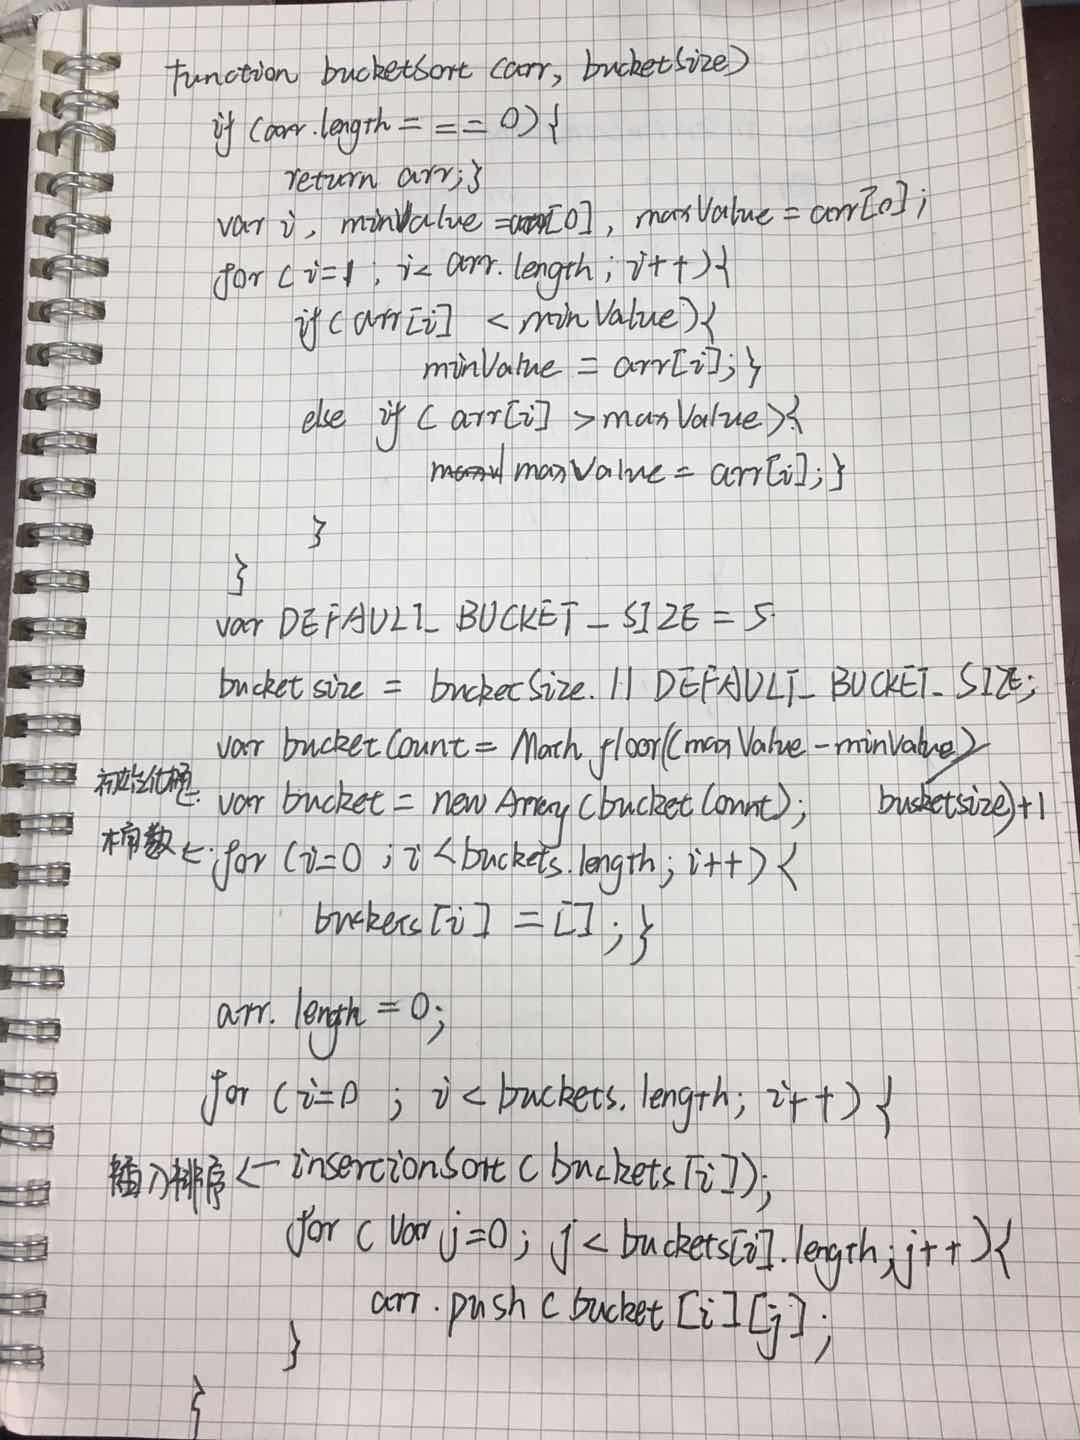 function bucketSort (arr, bucketSize)
if (arr.length = = = 0) {
return arr;}
var i, minValue = arr[0], maxValue = arr[0];
for (i=1; i< arr.length; i++){
if (arr[i] < minValue){
minValue = arr[i];}
else if (arr[i] > maxValue){
maxValue = arr[i];}
}
}
var DEFAULT_ BUCKET_ SIZE = 5.
bucket size = bucketSize. || DEFAULT_ BUCKET_ SIZE;
var bucketCount = Math floor((maxValue - minValue)/
初始化桶 ←. var bucket = new Array (bucketCount); busketsize)+1
桶数 ←. for (i=0 ; i < buckets.length; i++) {
buckets[i] = [] ; }
arr. length = 0;
for (i=0 ; i < buckets. length; i++) {
插入排序 ← insertionSort ( buckets[i]);
for ( var j=0; j < buckets[i].length; j++){
arr.push ( bucket [i][j];
}
}